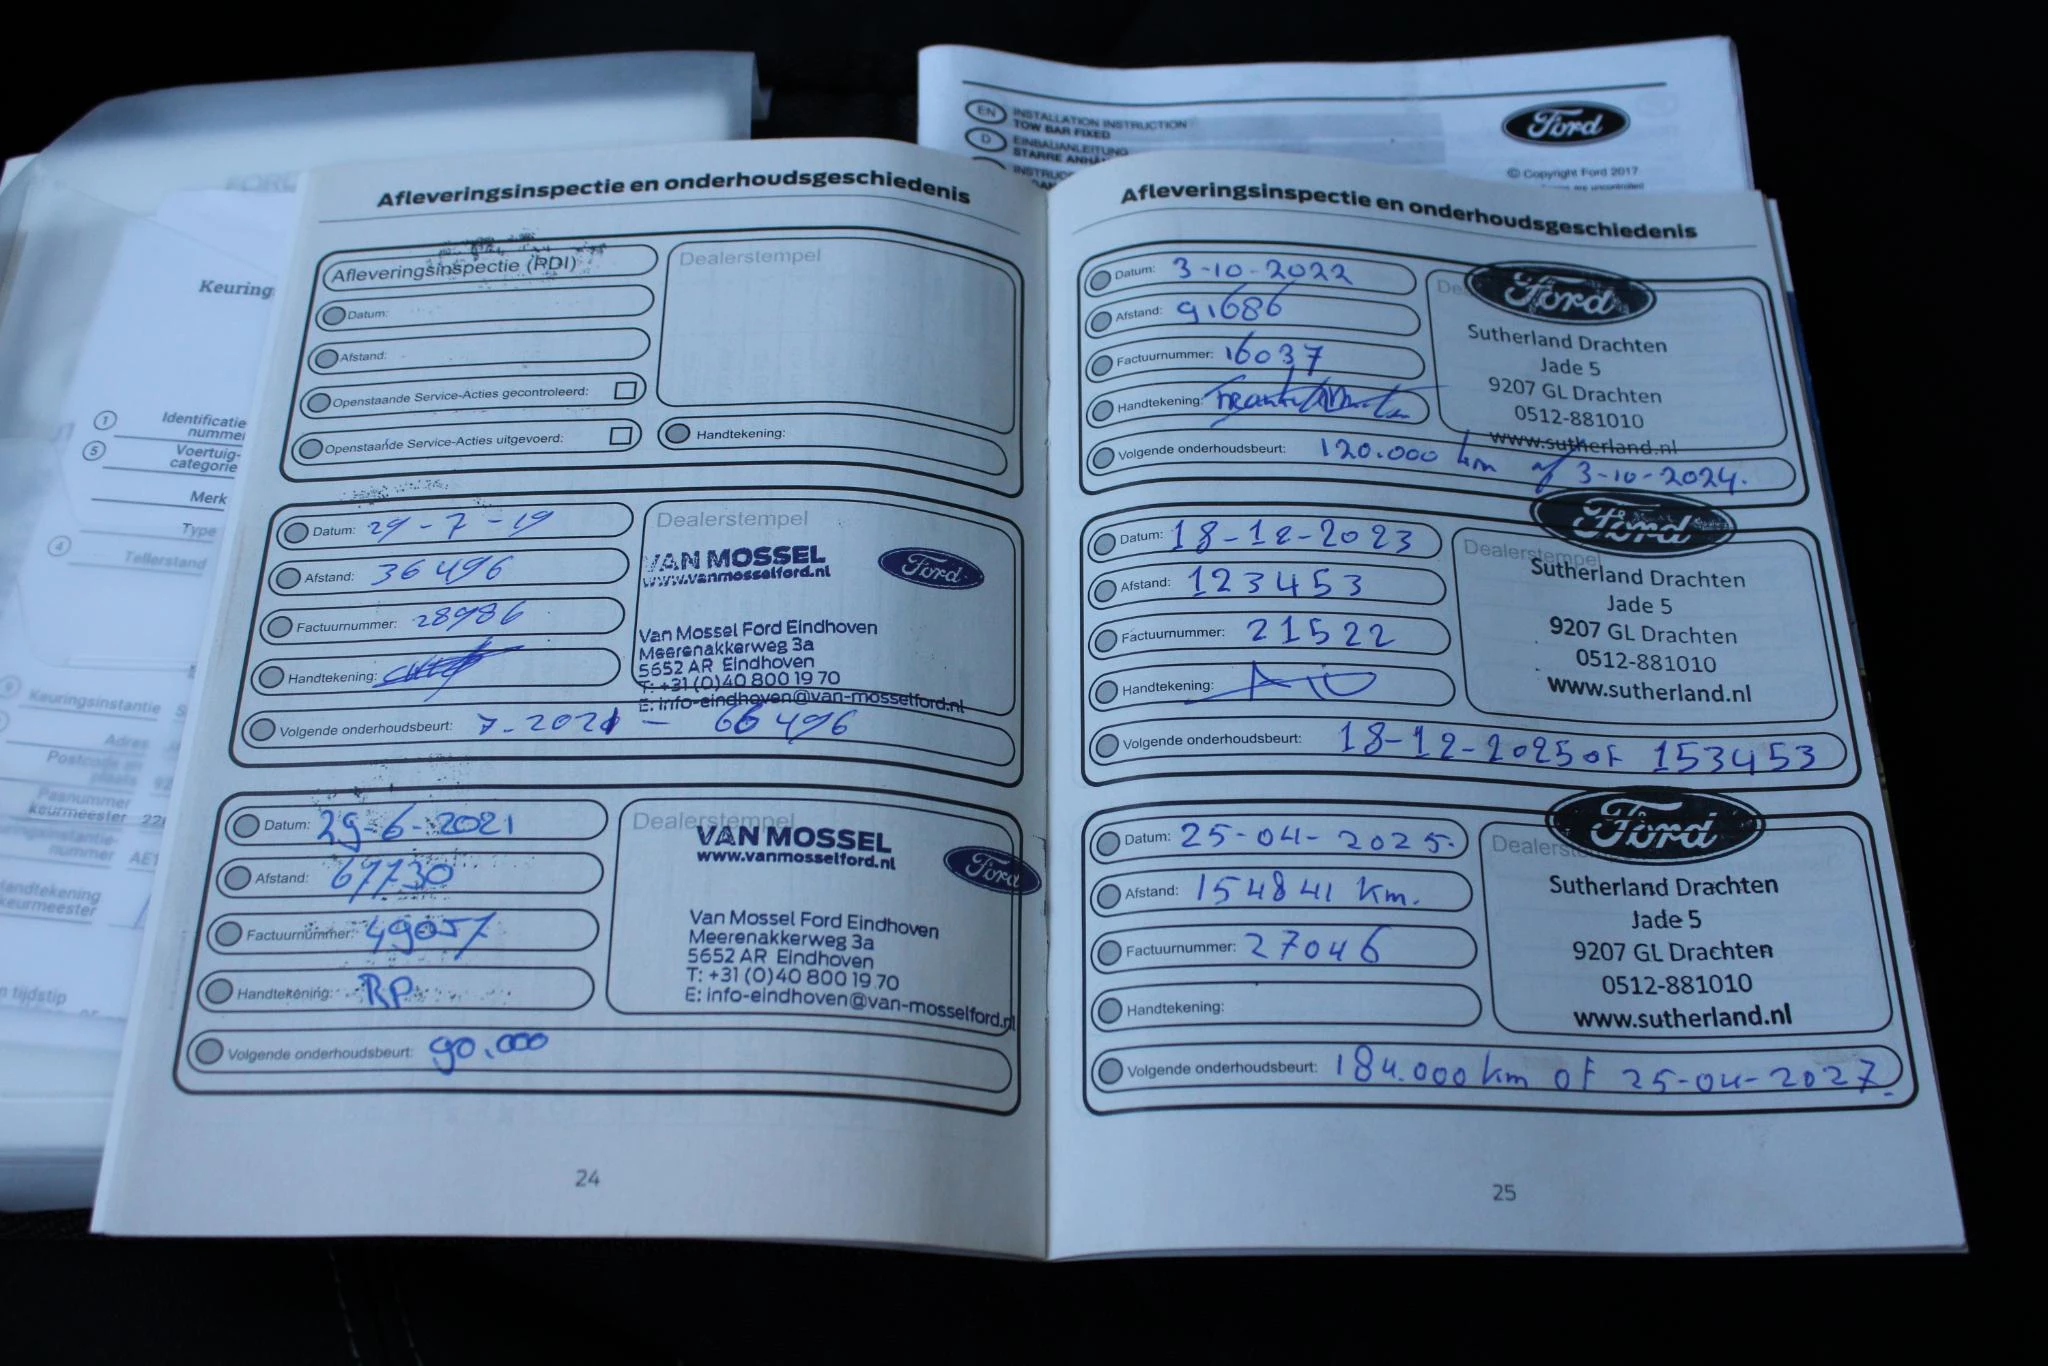 EN INSTALLATION INSTRUCTION
TOW BAR FIXED
D EINBAUANLEITUNG
Ford
© Copyright Ford 2017
Keuring
1 Identificatie
nummer
5 Voertuig-
categorie
Merk
Type
4 Tellerstand
Keuringsinstantie
Adres
Postcode en
plaats
Pasnummer
keurmeester
nummer AE1
keurmeester
tijdstip
Afleveringsinspectie en onderhoudsgeschiedenis
Afleveringsinspectie (RDI)
Dealerstempel
Datum:
Afstand:
Openstaande Service-Acties gecontroleerd:
Openstaande Service-Acties uitgevoerd:
Handtekening:
Datum: 29-7-19
Afstand: 36496
Factuurnummer: 28986
Handtekening:
Volgende onderhoudsbeurt: 7-2021 - 66496
Dealerstempel
VAN MOSSEL
www.vanmosselford.nl
Ford
Van Mossel Ford Eindhoven
Meerenakkerweg 3a
5652 AR Eindhoven
T: +31 (0)40 800 19 70
E: info-eindhoven@van-mosselford.nl
Datum: 29-6-2021
Afstand: 67730
Factuurnummer: 49057
Handtekening: RP
Volgende onderhoudsbeurt: 90.000
Dealerstempel
VAN MOSSEL
www.vanmosselford.nl
Ford
Van Mossel Ford Eindhoven
Meerenakkerweg 3a
5652 AR Eindhoven
T: +31 (0)40 800 19 70
E: info-eindhoven@van-mosselford.nl
24
Afleveringsinspectie en onderhoudsgeschiedenis
Datum: 3-10-2022
Afstand: 91686
Factuurnummer: 16037
Handtekening:
Volgende onderhoudsbeurt: 120.000 km of 3-10-2024.
Ford
Sutherland Drachten
Jade 5
9207 GL Drachten
0512-881010
www.sutherland.nl
Datum: 18-12-2023
Afstand: 123453
Factuurnummer: 21522
Handtekening:
Volgende onderhoudsbeurt: 18-12-2025 of 153453
Ford
Dealerstempel
Sutherland Drachten
Jade 5
9207 GL Drachten
0512-881010
www.sutherland.nl
Datum: 25-04-2025.
Afstand: 154841 km.
Factuurnummer: 27046
Handtekening:
Volgende onderhoudsbeurt: 184.000 km of 25-04-2027.
Ford
Sutherland Drachten
Jade 5
9207 GL Drachten
0512-881010
www.sutherland.nl
25